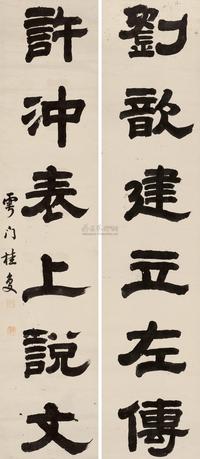 劉歆建立左傳
許沖表上說文
雩門桂馥